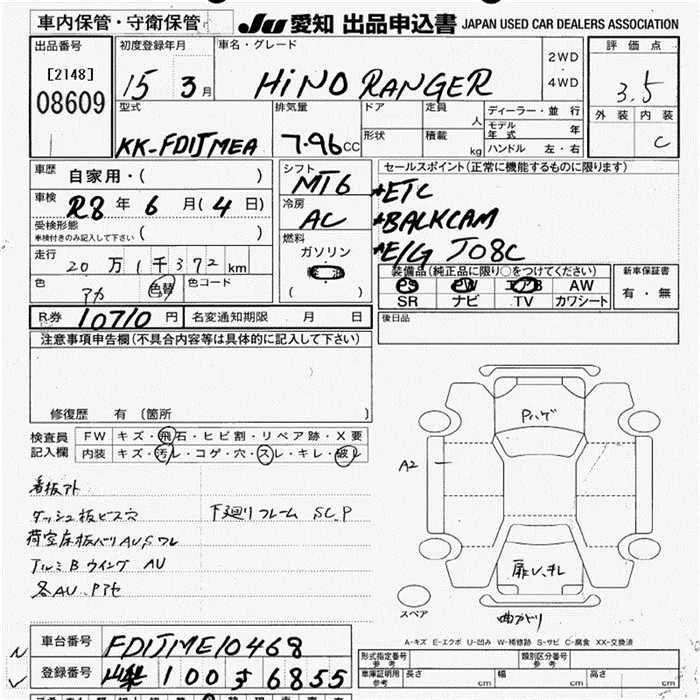 車内保管・守衛保管
JU 愛知 出品申込書 JAPAN USED CAR DEALERS ASSOCIATION
出品番号
[2148]
08609
初度登録年月
15 3月
車名・グレード
HINO RANGER
2WD
4WD
評価点
3.5
外装 内装
C
型式
KK-FD1JMEA
排気量
7.96CC
ドア
形状
定員
人
積載
kg
ディーラー・並行
モデル年式 年
ハンドル 左・右
車歴
自家用・( )
車検
R8年6月(4日)
受検形態
車検付きのみ記入して下さい ( )
走行
20万1千372km
色
アカ
色替
色コード
シフト
MT6
冷房
AC
燃料
ガソリン
( )
セールスポイント(正常に機能するものに限ります)
*ETC
*BALKCAM
*E/G J08C
装備品(純正品に限り○をつけてください)
PS PW エアB AW
SR ナビ TV カワシート
新車保証書
有・無
R.券 10710円
名変通知期限 月 日
後日品
注意事項申告欄(不具合内容等は具体的に記入して下さい)
修復歴 有 (箇所 )
検査員
記入欄
FW キズ・飛石・ヒビ割・リペア跡・X要
内装 キズ・汚レ・コゲ・穴・スレ・キレ・破レ
看板アト
ダッシュ板ビス穴
下廻りフレーム SC.P
荷室床板バリAU,Sワレ
アルミBウイング AU
各AU、Pアセ
Pハゲ
A2
扉U、キレ
曲がり
スペア
A-キズ E-エクボ U-凹み W-補修跡 S-サビ C-腐食 XX-交換済
車台番号
FD1JME10468
登録番号
山梨 100 す 6855
型式指定番号
参考
類別区分番号
参考
車庫証明用
参考
長さ cm 幅 cm 高さ cm